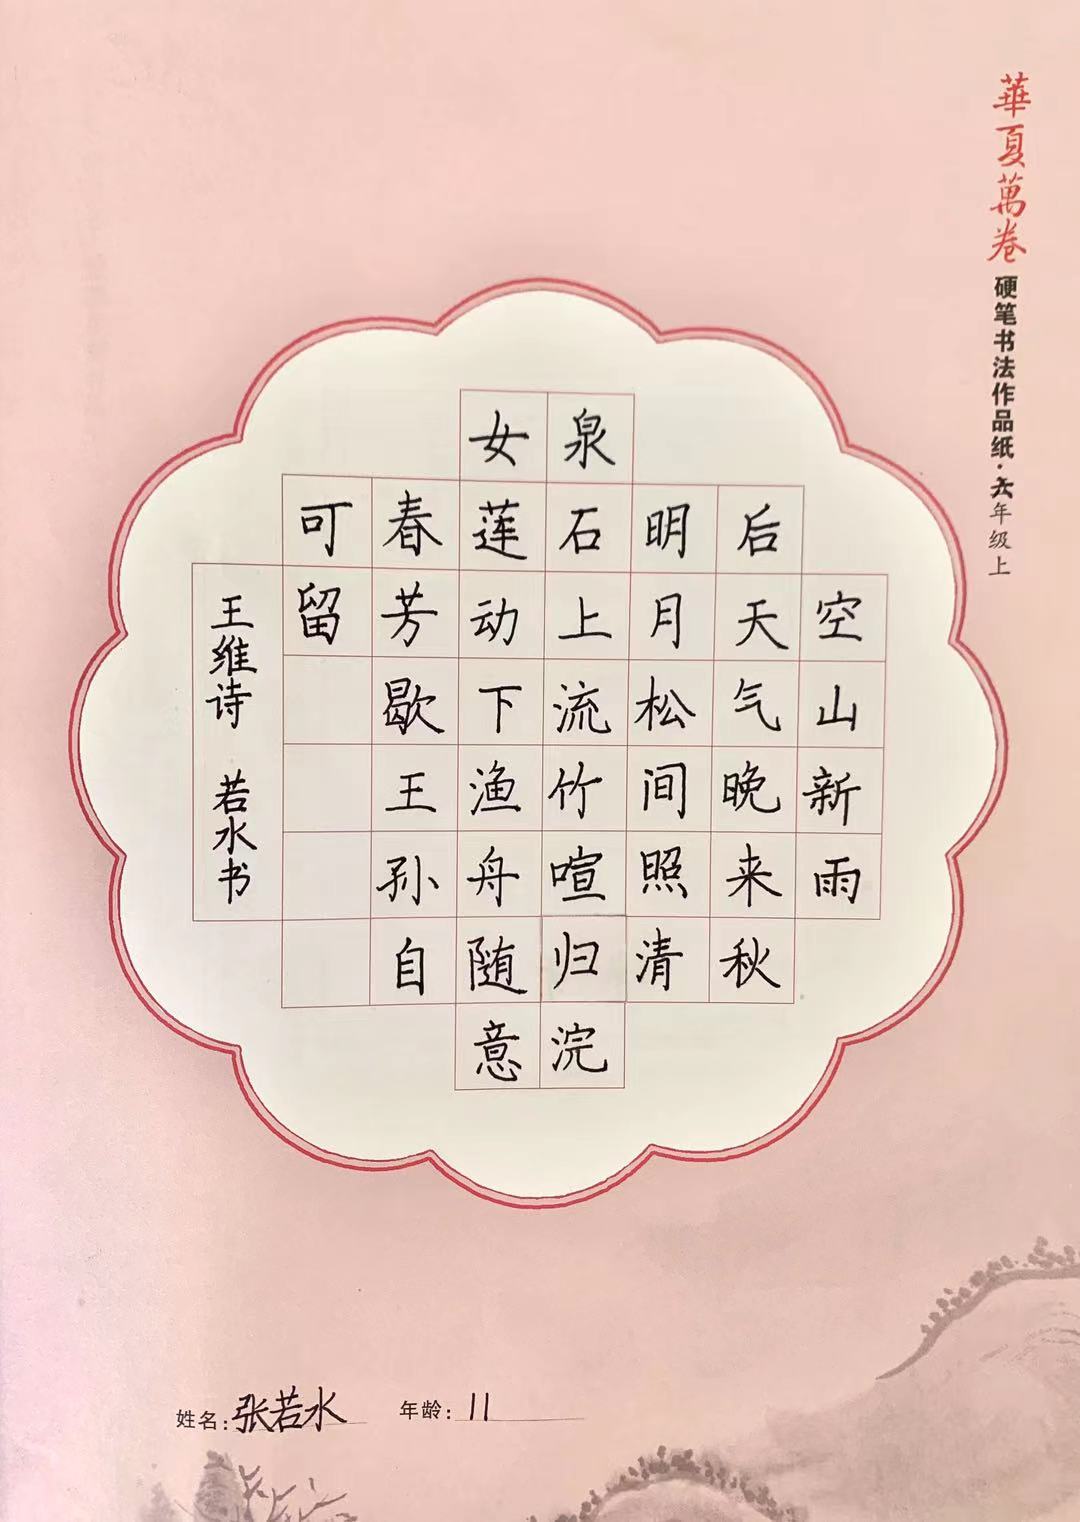 華夏萬卷
硬笔书法作品纸·六年级上
空山新雨
后天气晚来秋
明月松间照清
泉石上流竹喧归浣
女莲动下渔舟随意
春芳歇王孙自
可留
王维诗 若水书
姓名：张若水 年龄：11